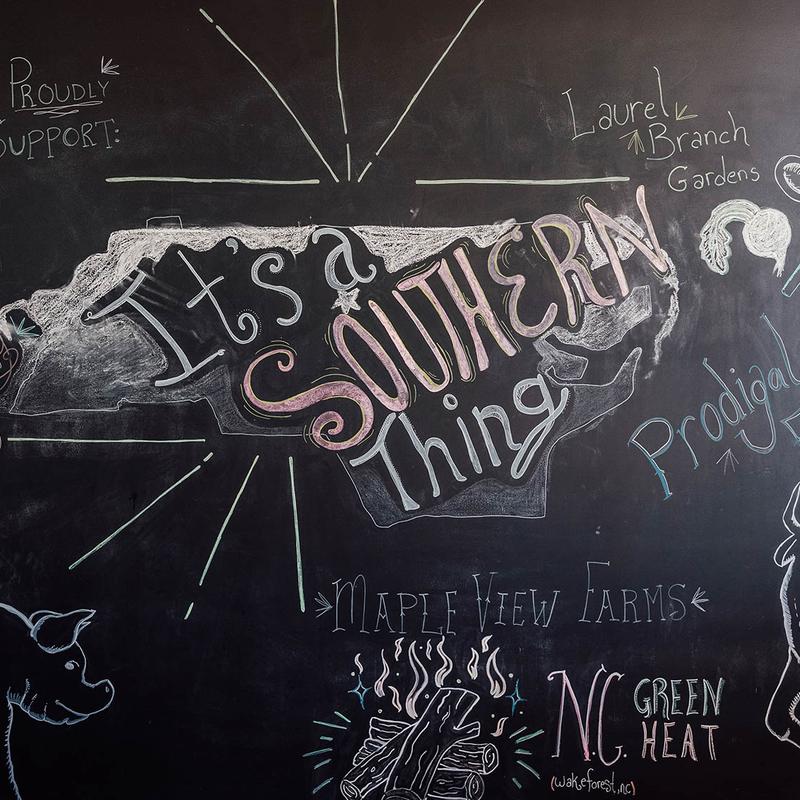 PROUDLY
SUPPORT:
Laurel
Branch
Gardens
It's a
SOUTHERN
Thing
Prodigal
MAPLE VIEW FARMS
N.C. GREEN
HEAT
(wakeforest,nc)